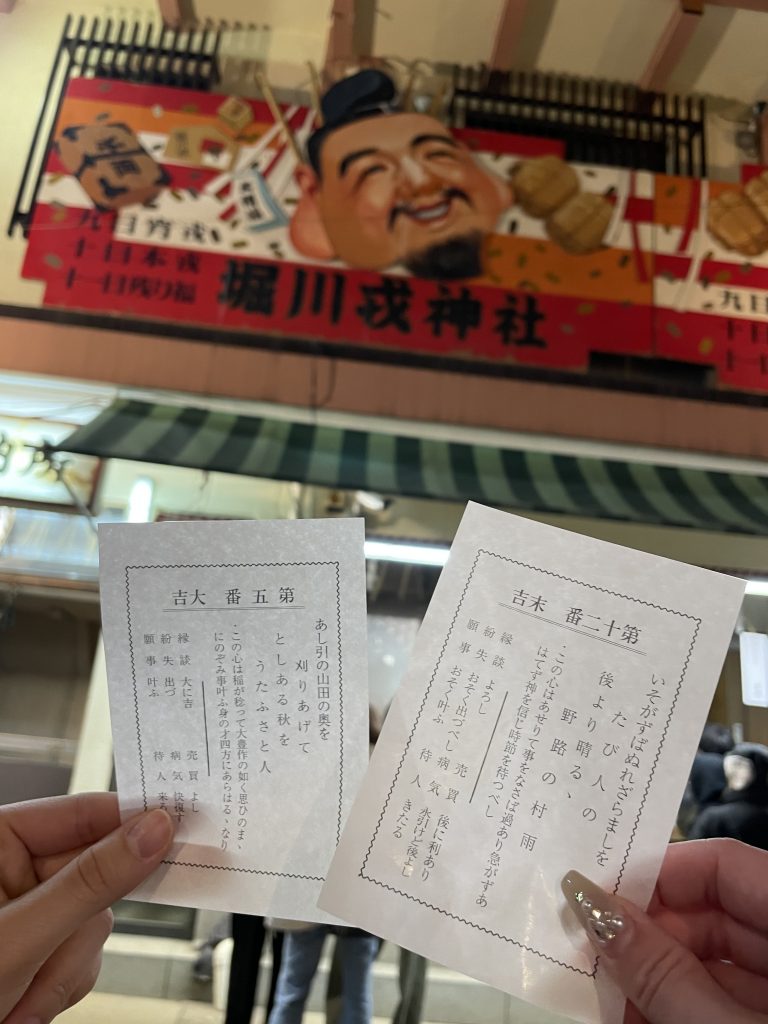 九日宵戎
十日本戎
十一日残り福
堀川戎神社
九日
十日
十一
第五番 大吉
あし引の山田の奥を
刈りあげて
としある秋を
うたふさと人
・この心は稲が稔って大豊作の如く思ひのまゝ
にのぞみ事叶ふ身の才四方にあらはるゝなり
縁談 大に吉 売買 よし
紛失 出づ 病気 快復す
願事 叶ふ 待人 来る
第十二番 末吉
いそがずばぬれざらましを
たび人の
後より晴るゝ
野路の村雨
・この心はあせりて事をなさば過あり急がずあ
はてず神を信じ時節を待つべし
縁談 よろし 売買 後に利あり
紛失 おそく出づべし 病気 永引けど後よし
願事 おそく叶ふ 待人 きたる